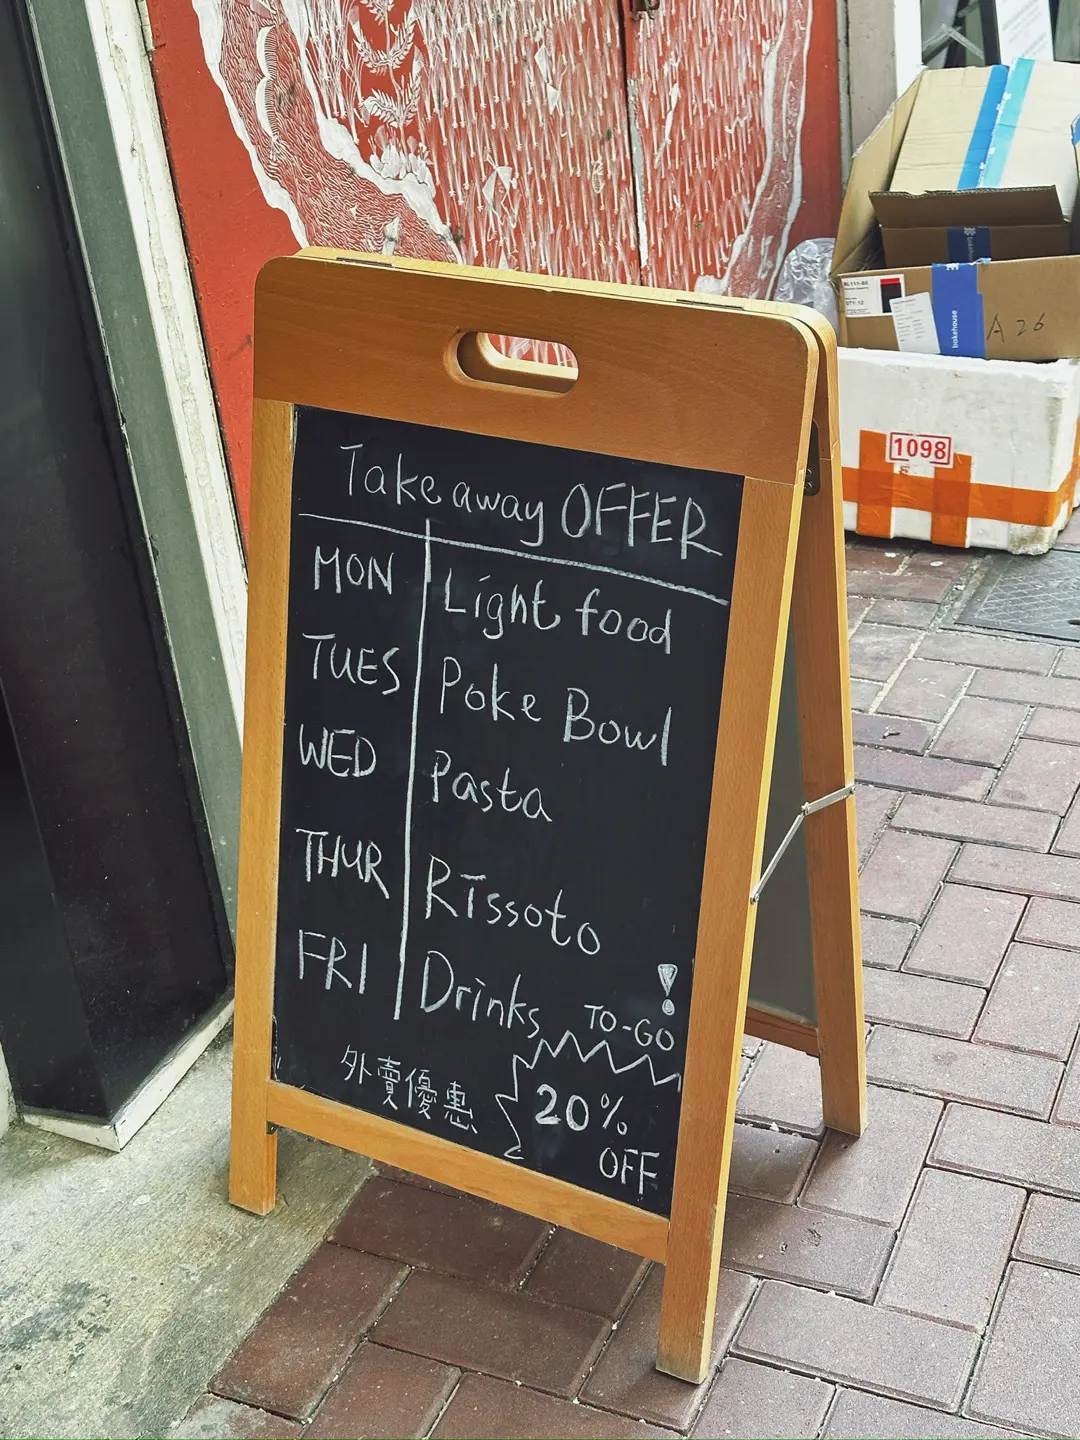 Take away OFFER
MON Light food
TUES Poke Bowl
WED Pasta
THUR Rissoto
FRI Drinks
TO-GO!
外賣優惠
20%
OFF
bakehouse
A 26
1098